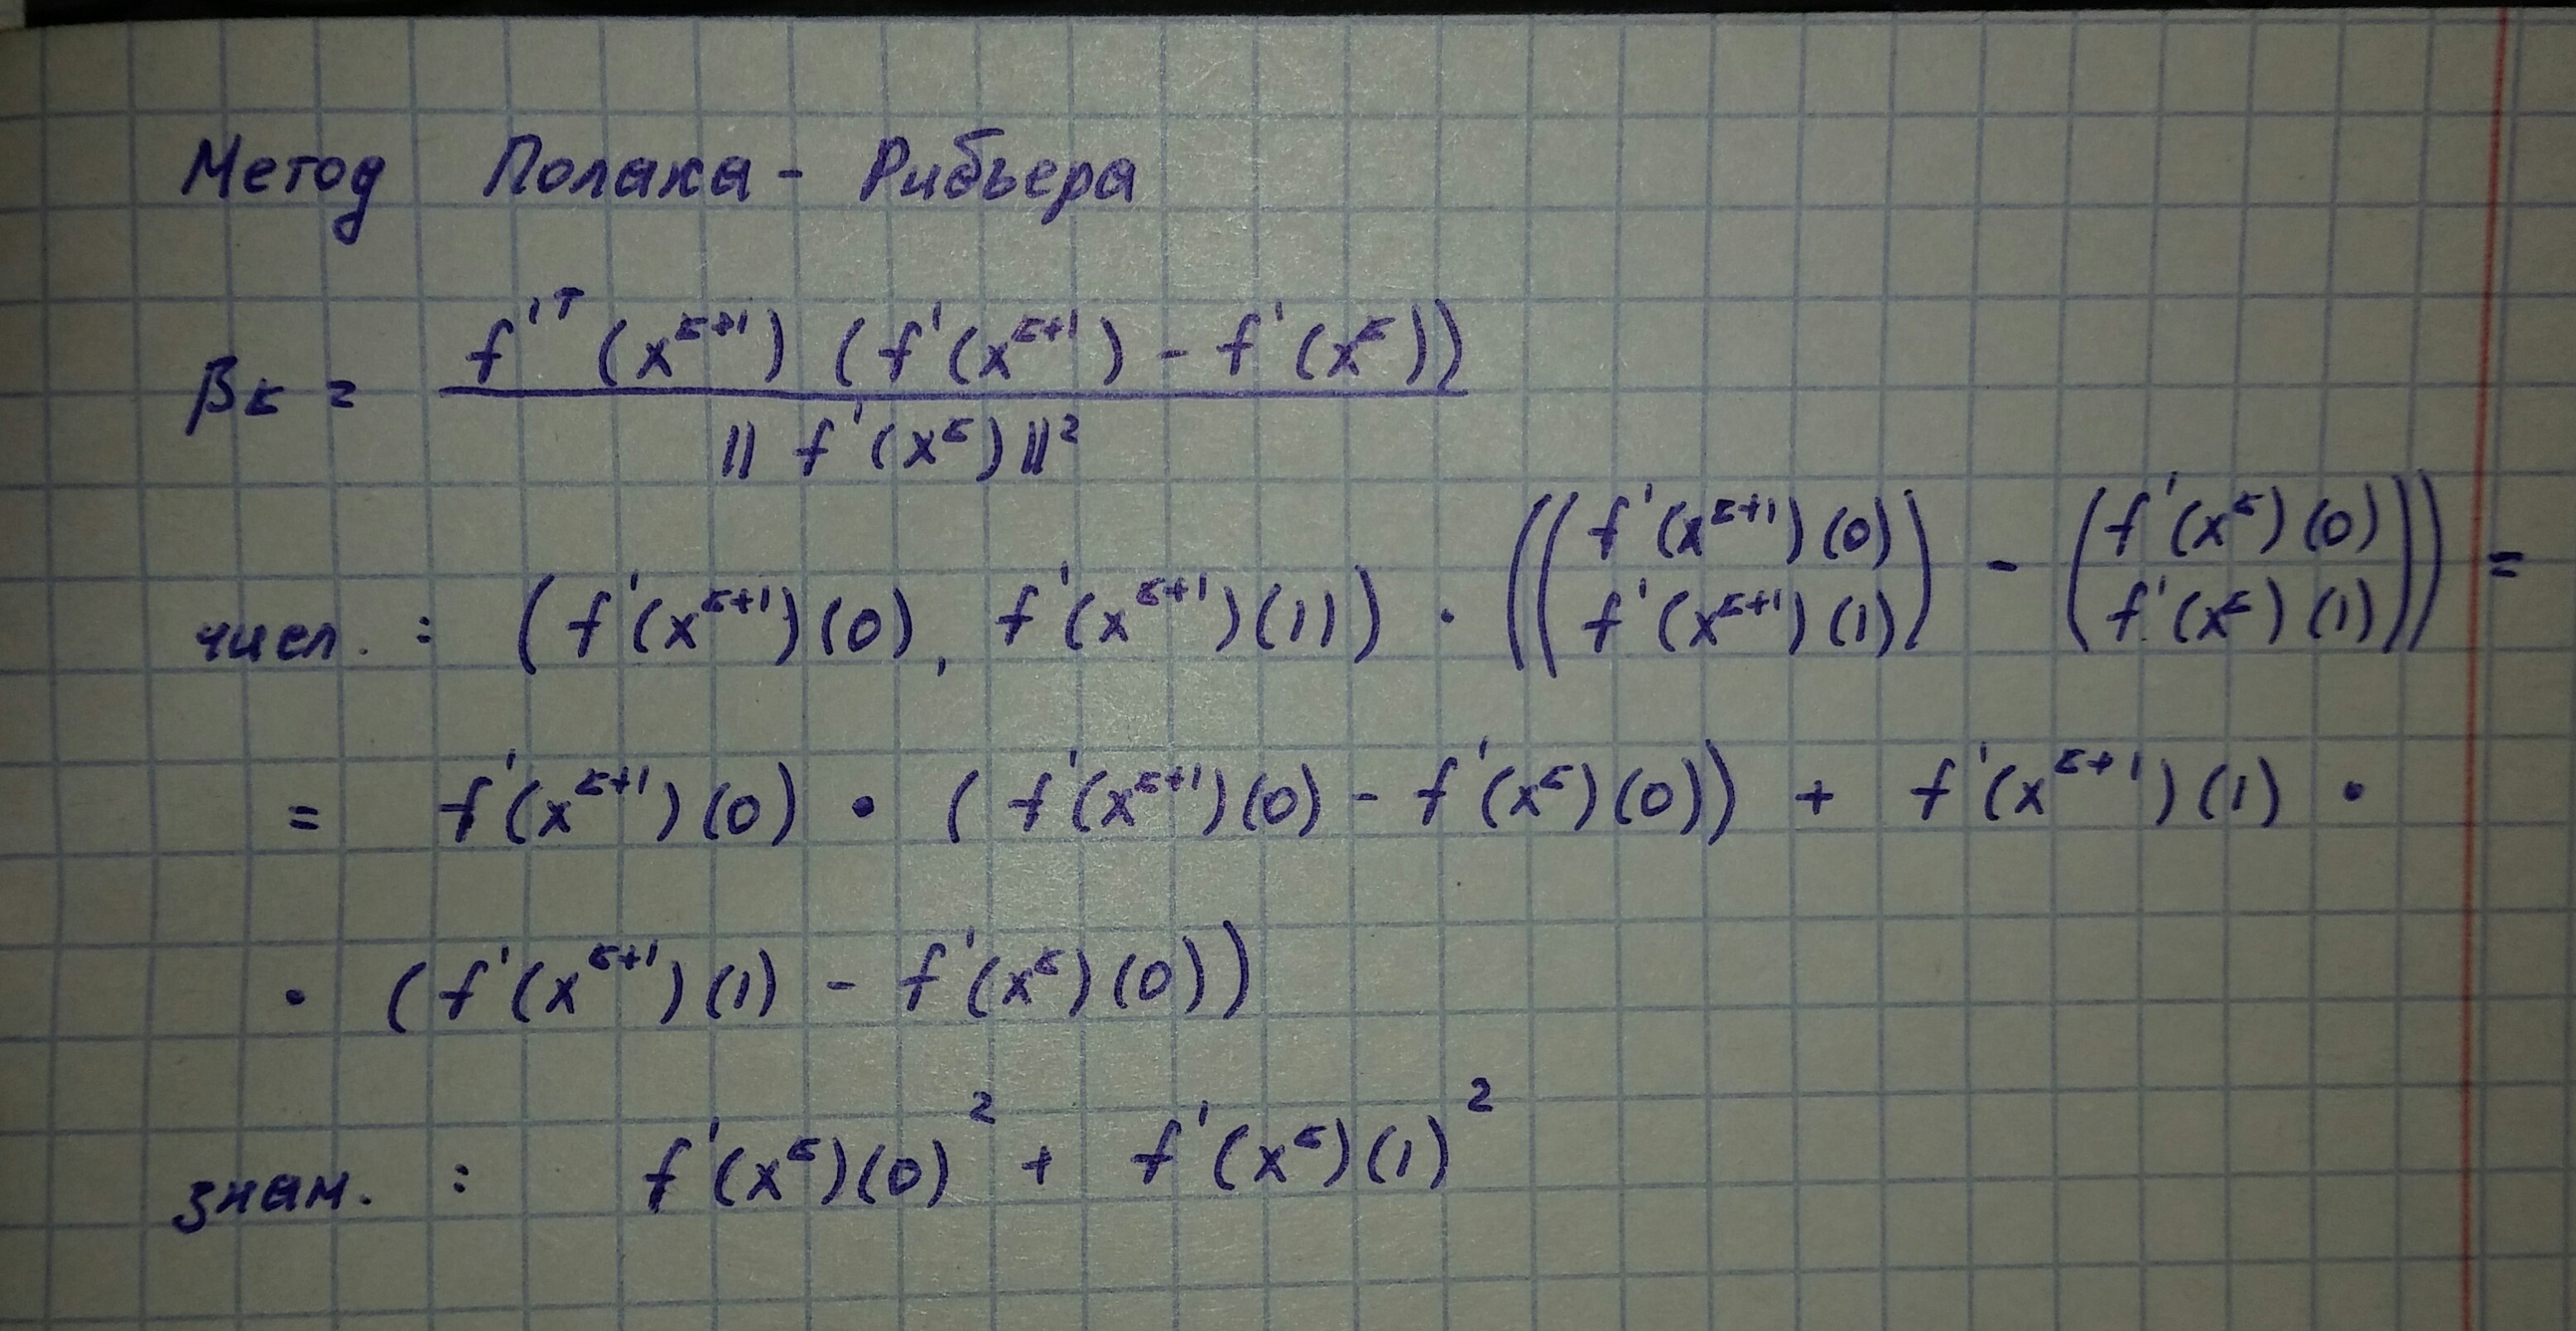 Метод Полака - Рибьера
βк = f'ᵀ (xᵏ⁺¹) (f'(xᵏ⁺¹) - f'(xᵏ))
|| f'(xᵏ) ||²
числ. : (f'(xᵏ⁺¹)(0), f'(xᵏ⁺¹)(1)) · ((f'(xᵏ⁺¹)(0) f'(xᵏ⁺¹)(1)) - (f'(xᵏ)(0) f'(xᵏ)(1))) =
= f'(xᵏ⁺¹)(0) · (f'(xᵏ⁺¹)(0) - f'(xᵏ)(0)) + f'(xᵏ⁺¹)(1) ·
· (f'(xᵏ⁺¹)(1) - f'(xᵏ)(0))
знам. : f'(xᵏ)(0)² + f'(xᵏ)(1)²